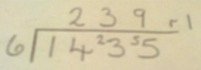 239 r1
6 14²3⁵5